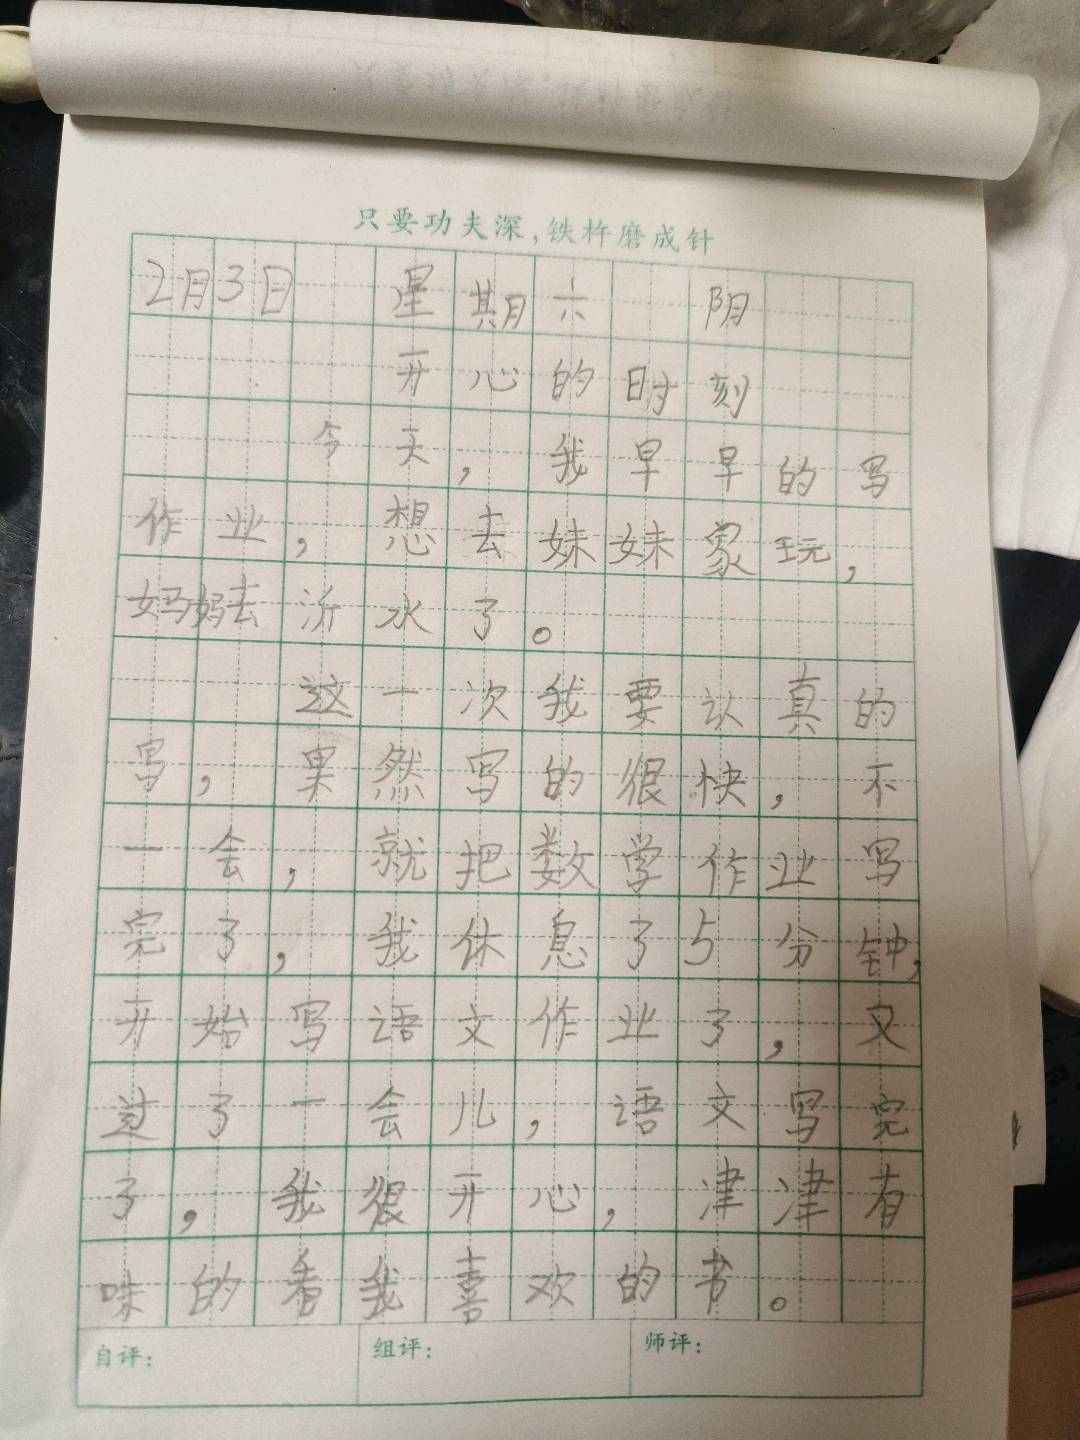 只要功夫深,铁杵磨成针
2月3日 星期六 阴
开心的时刻
今天，我早早的写
作业，想去妹妹家玩，
妈妈去沂水了。
这一次我要认真的
写，果然写的很快，不
一会，就把数学作业写
完了，我休息了5分钟，
开始写语文作业了，又
过了一会儿，语文写完
了，我很开心，津津有
味的看我喜欢的书。
自评：
组评：
师评：